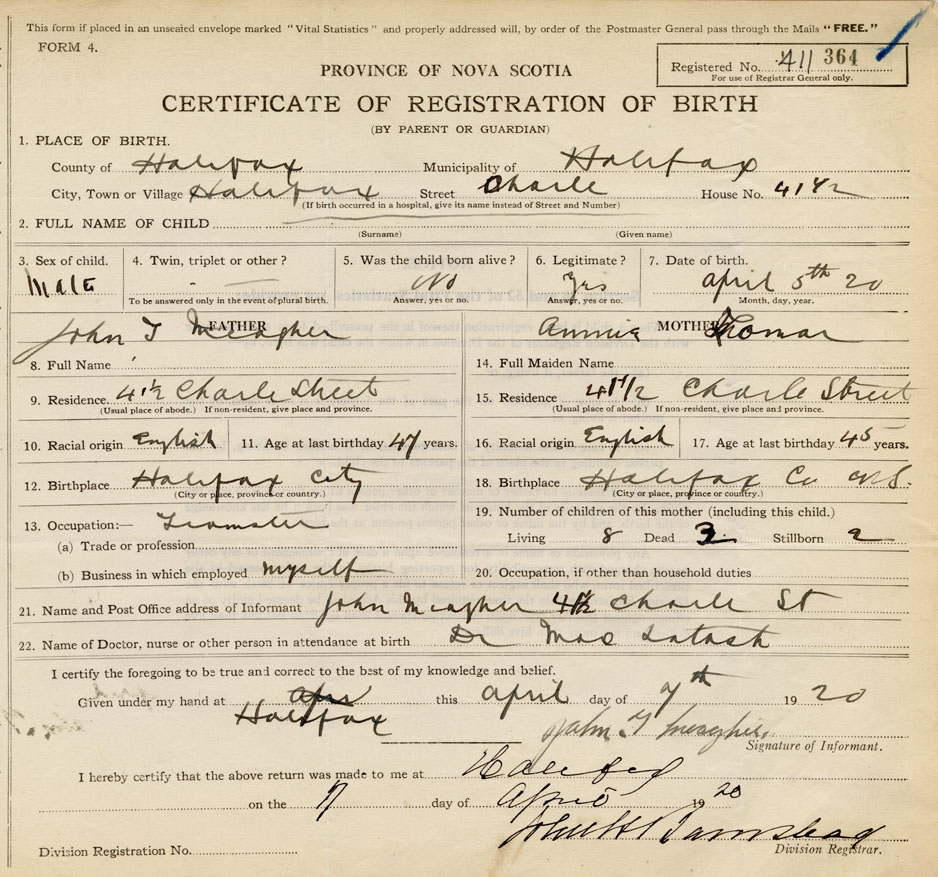 This form if placed in an unsealed envelope marked "Vital Statistics" and properly addressed will, by order of the Postmaster General pass through the Mails "FREE."
FORM 4.
Registered No. 411 364
For use of Registrar General only.
PROVINCE OF NOVA SCOTIA
CERTIFICATE OF REGISTRATION OF BIRTH
(BY PARENT OR GUARDIAN)
1. PLACE OF BIRTH.
County of Halifax Municipality of Halifax
City, Town or Village Halifax Street Charle House No. 41½
(If birth occurred in a hospital, give its name instead of Street and Number)
2. FULL NAME OF CHILD
(Surname) (Given name)
3. Sex of child. 4. Twin, triplet or other? 5. Was the child born alive? 6. Legitimate? 7. Date of birth.
Male - — No Yes April 5th 20
To be answered only in the event of plural birth. Answer, yes or no. Answer, yes or no. Month, day, year.
FATHER MOTHER
John T Meagher Annie Thomas
8. Full Name 14. Full Maiden Name
9. Residence 41½ Charle Street 15. Residence 41½ Charle Street
(Usual place of abode.) If non-resident, give place and province. (Usual place of abode.) If non-resident, give place and province.
10. Racial origin English 11. Age at last birthday 47 years. 16. Racial origin English 17. Age at last birthday 45 years.
12. Birthplace Halifax City 18. Birthplace Halifax Co N.S.
(City or place, province or country.) (City or place, province or country.)
13. Occupation:— Teamster 19. Number of children of this mother (including this child.)
(a) Trade or profession Living 8 Dead 3 Stillborn 2
(b) Business in which employed myself 20. Occupation, if other than household duties
21. Name and Post Office address of Informant John Meagher 41½ Charle St
22. Name of Doctor, nurse or other person in attendance at birth Dr Mac
I certify the foregoing to be true and correct to the best of my knowledge and belief.
Given under my hand at Halifax this April day of 7th 1920
John T Meagher
Signature of Informant.
I hereby certify that the above return was made to me at Halifax
on the 7 day of April 1920
Division Registration No. Division Registrar.